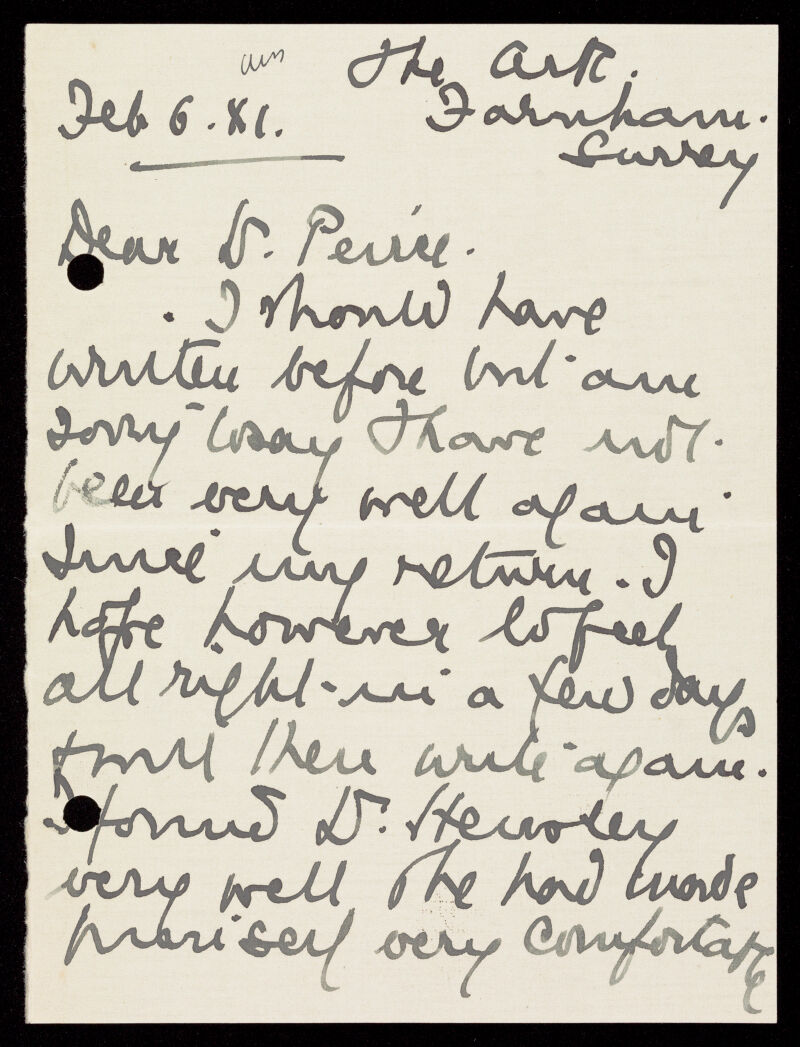 ans
The Ark.
Farnham.
Surrey
Feb 6. XI.
Dear D. Peirce.
. I should have
written before but am
sorry to say I have not.
been very well again
since my return. I
hope however to feel
all right in a few days
& will then write again.
I found D. Hewsley
very well & he had made
himself very comfortable